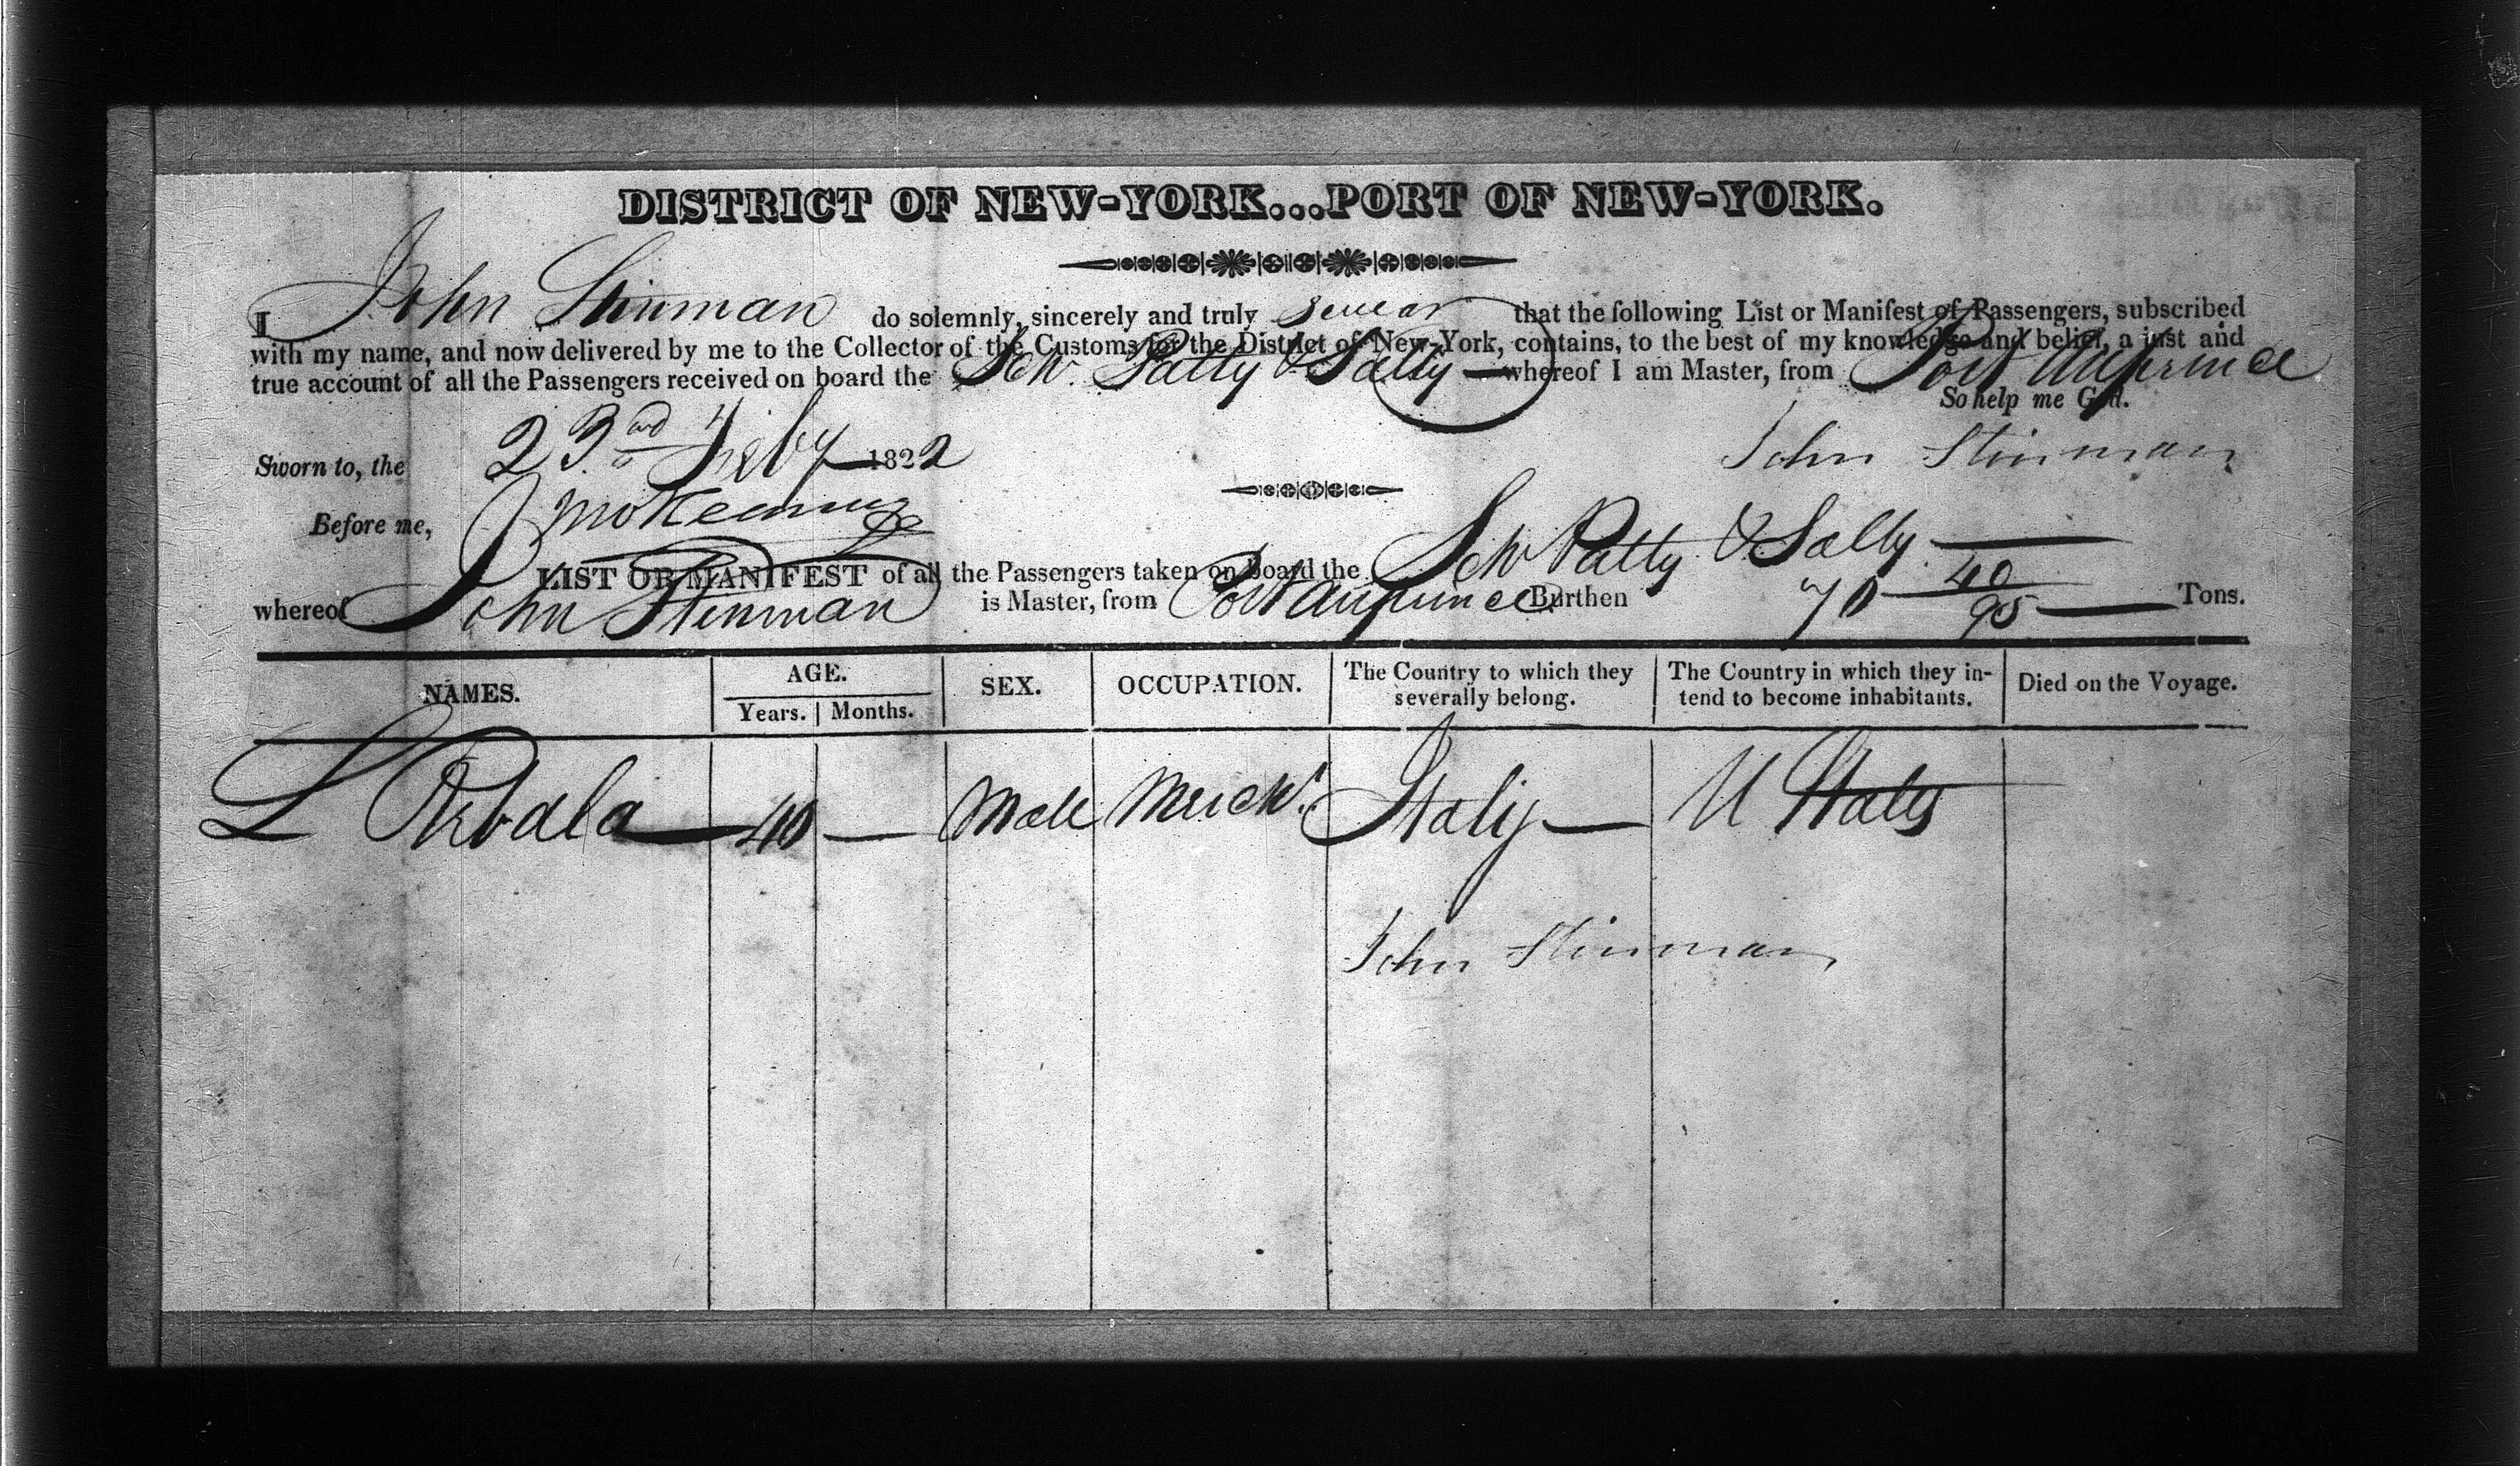 DISTRICT OF NEW-YORK...PORT OF NEW-YORK.
I John Stinman do solemnly, sincerely and truly swear that the following List or Manifest of Passengers, subscribed
with my name, and now delivered by me to the Collector of the Customs for the District of New-York, contains, to the best of my knowledge and belief, a just and
true account of all the Passengers received on board the Schr. Patty & Sally whereof I am Master, from Port au prince
So help me God.
Sworn to, the 23rd Feby 1822
John Stinman
Before me,
LIST OR MANIFEST of all the Passengers taken on board the Schr Patty & Sally
whereof John Stinman is Master, from Port au prince Burthen 70 40/95 Tons.
NAMES. AGE. Years. Months. SEX. OCCUPATION. The Country to which they severally belong. The Country in which they intend to become inhabitants. Died on the Voyage.
L 40 — Male Merch't Italy U States
John Stinman